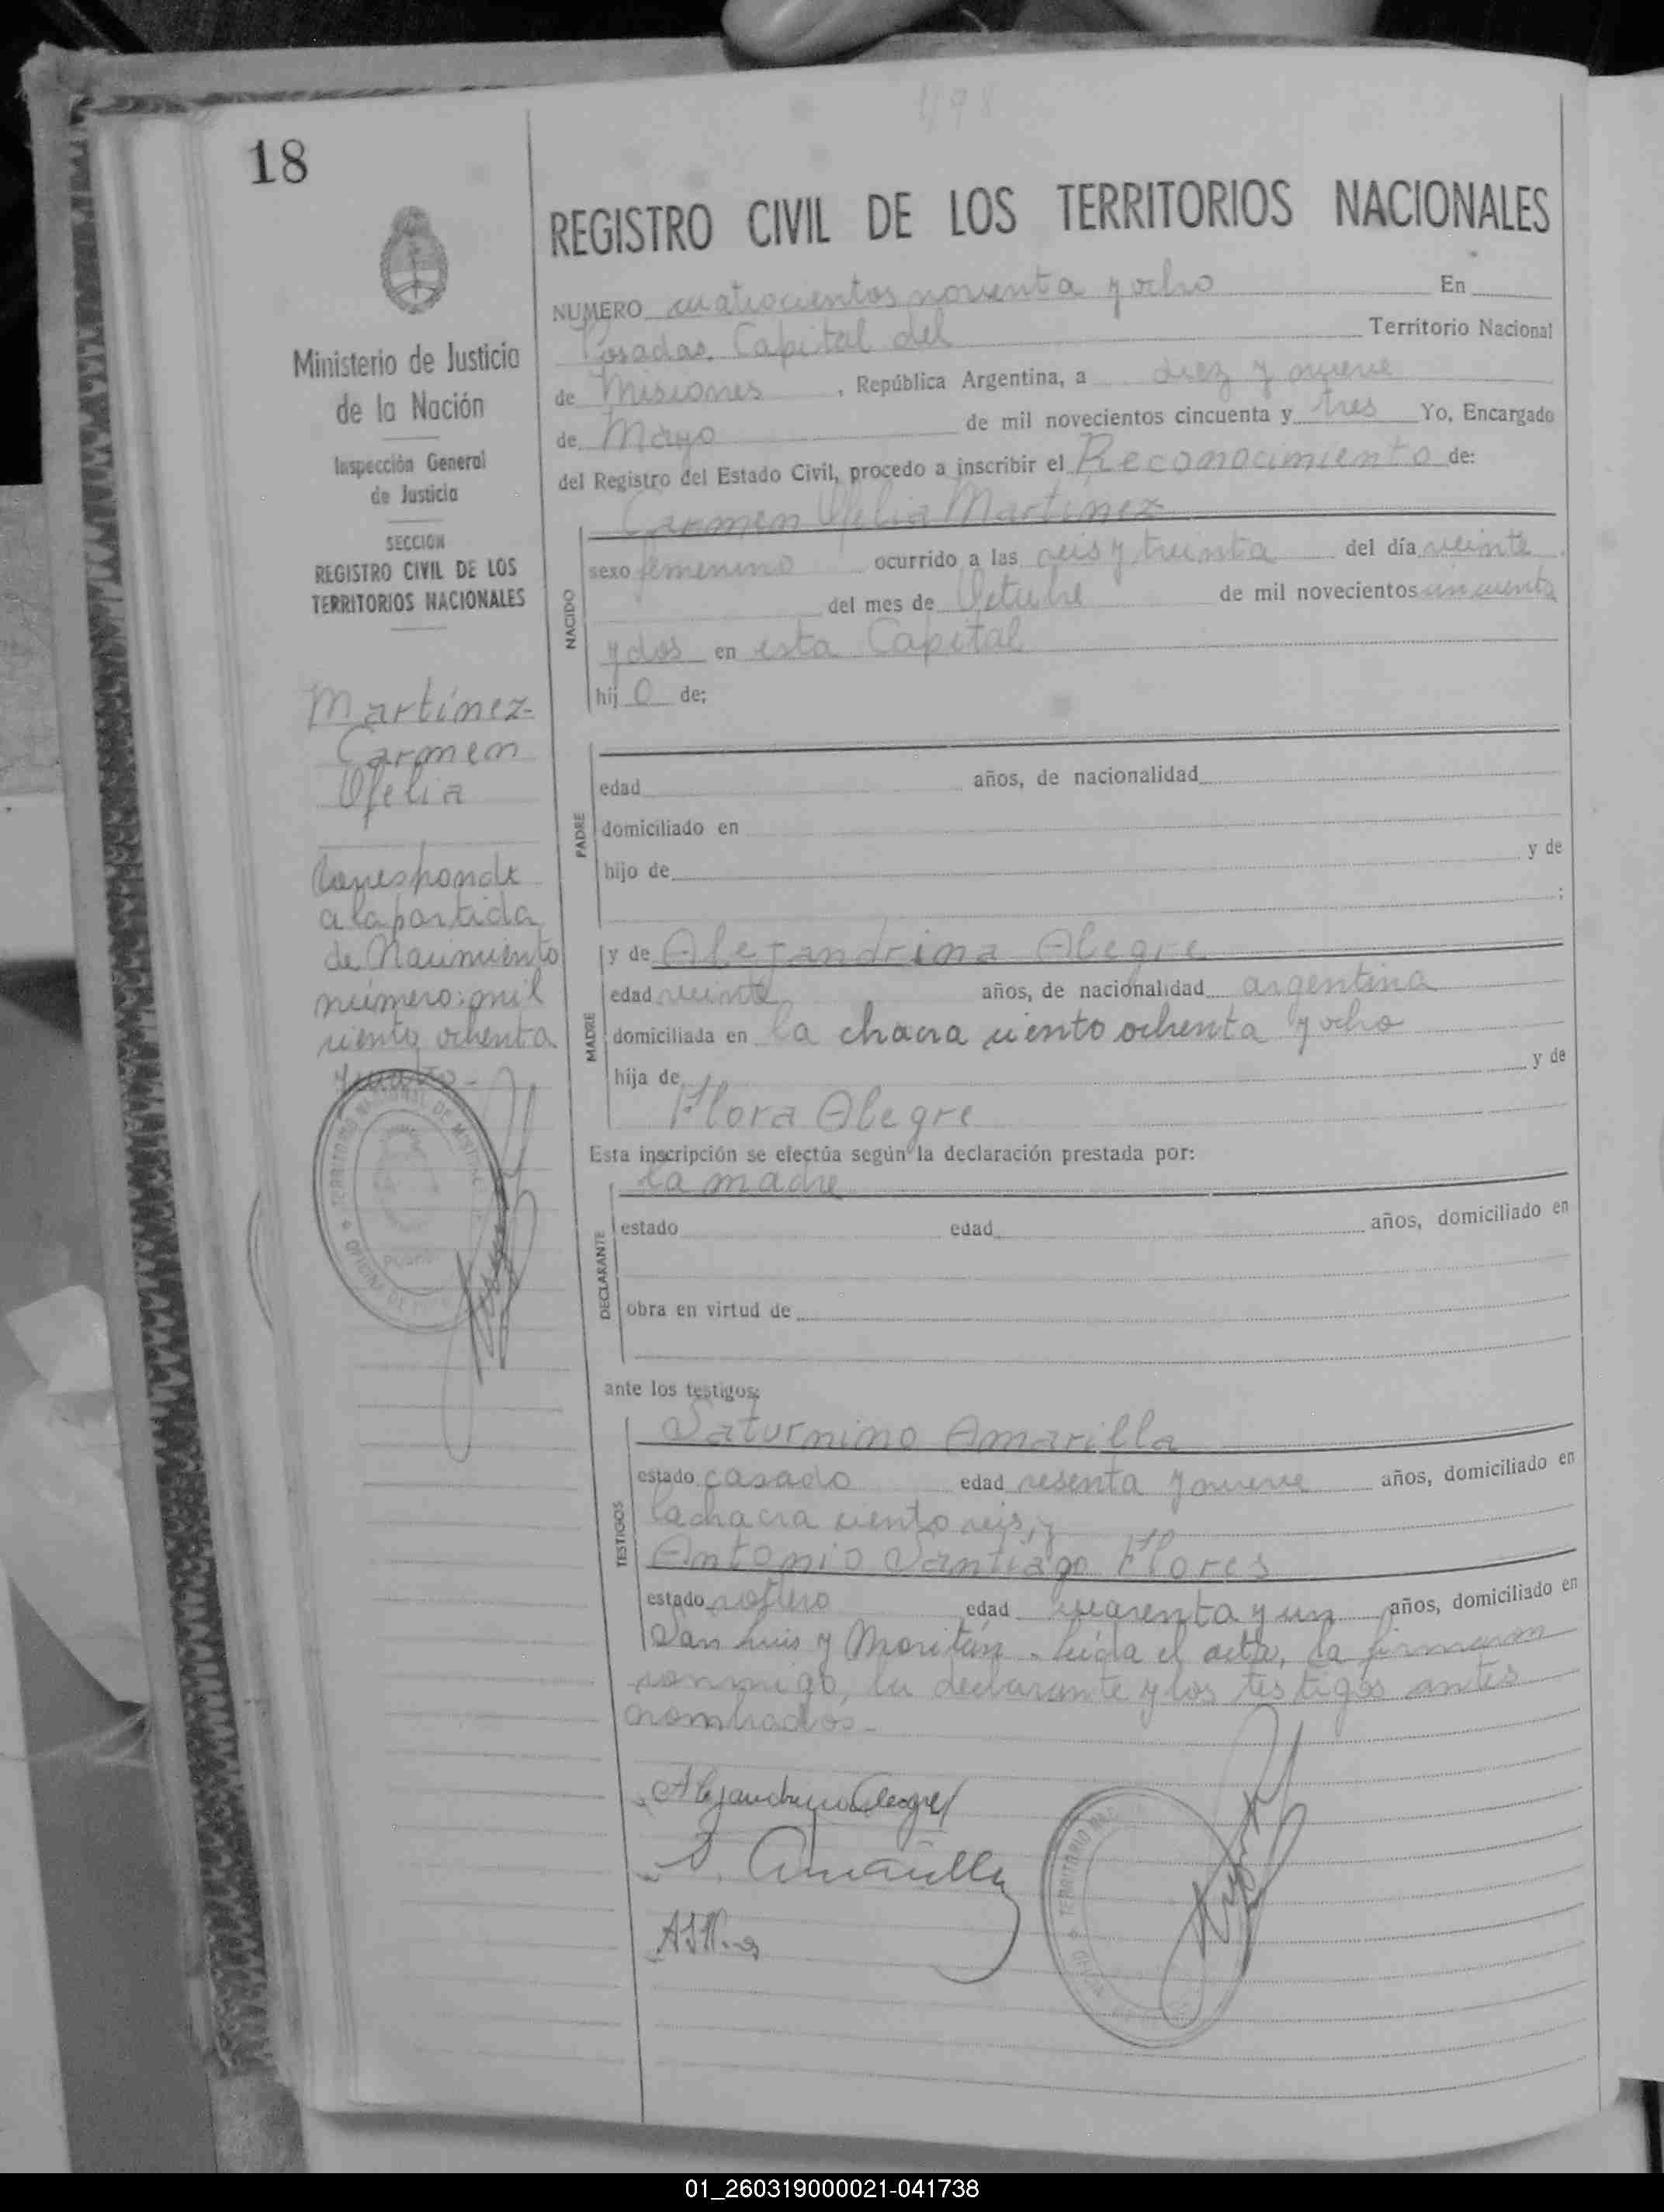 498
18
REGISTRO CIVIL DE LOS TERRITORIOS NACIONALES
NUMERO cuatrocientos noventa y ocho En
Posadas, Capital del Territorio Nacional
de Misiones, República Argentina, a diez y nueve
de Mayo de mil novecientos cincuenta y tres Yo, Encargado
del Registro del Estado Civil, procedo a inscribir el Reconocimiento de:
Carmen Ofelia Martínez
NACIDO
sexo femenino ocurrido a las seis y treinta del día veinte
del mes de Octubre de mil novecientos cincuenta
y dos en esta Capital
hij o de;
PADRE
edad años, de nacionalidad
domiciliado en
hijo de y de
;
MADRE
y de Alejandrina Alegre
edad veinte años, de nacionalidad argentina
domiciliada en la chacra ciento ochenta y ocho
hija de y de
Flora Alegre
Esta inscripción se efectúa según la declaración prestada por:
la madre
DECLARANTE
estado edad años, domiciliado en
obra en virtud de
ante los testigos:
TESTIGOS
Saturnino Amarilla
estado casado edad sesenta y nueve años, domiciliado en
la chacra ciento seis, y
Antonio Santiago Flores
estado soltero edad cuarenta y un años, domiciliado en
San Luis y Moritán. Leída el acta, la firmaron
conmigo, la declarante y los testigos antes
nombrados.-
Alejandrina Alegre
S. Amarilla
Ministerio de Justicia
de la Nación
Inspección General
de Justicia
SECCION
REGISTRO CIVIL DE LOS
TERRITORIOS NACIONALES
Martínez-
Carmen
Ofelia
Corresponde
a la partida
de Nacimiento
número: mil
ciento ochenta
y cuatro-
TERRITORIO NACIONAL DE MISIONES
OFICINA DE
TERRITORIO
01_260319000021-041738